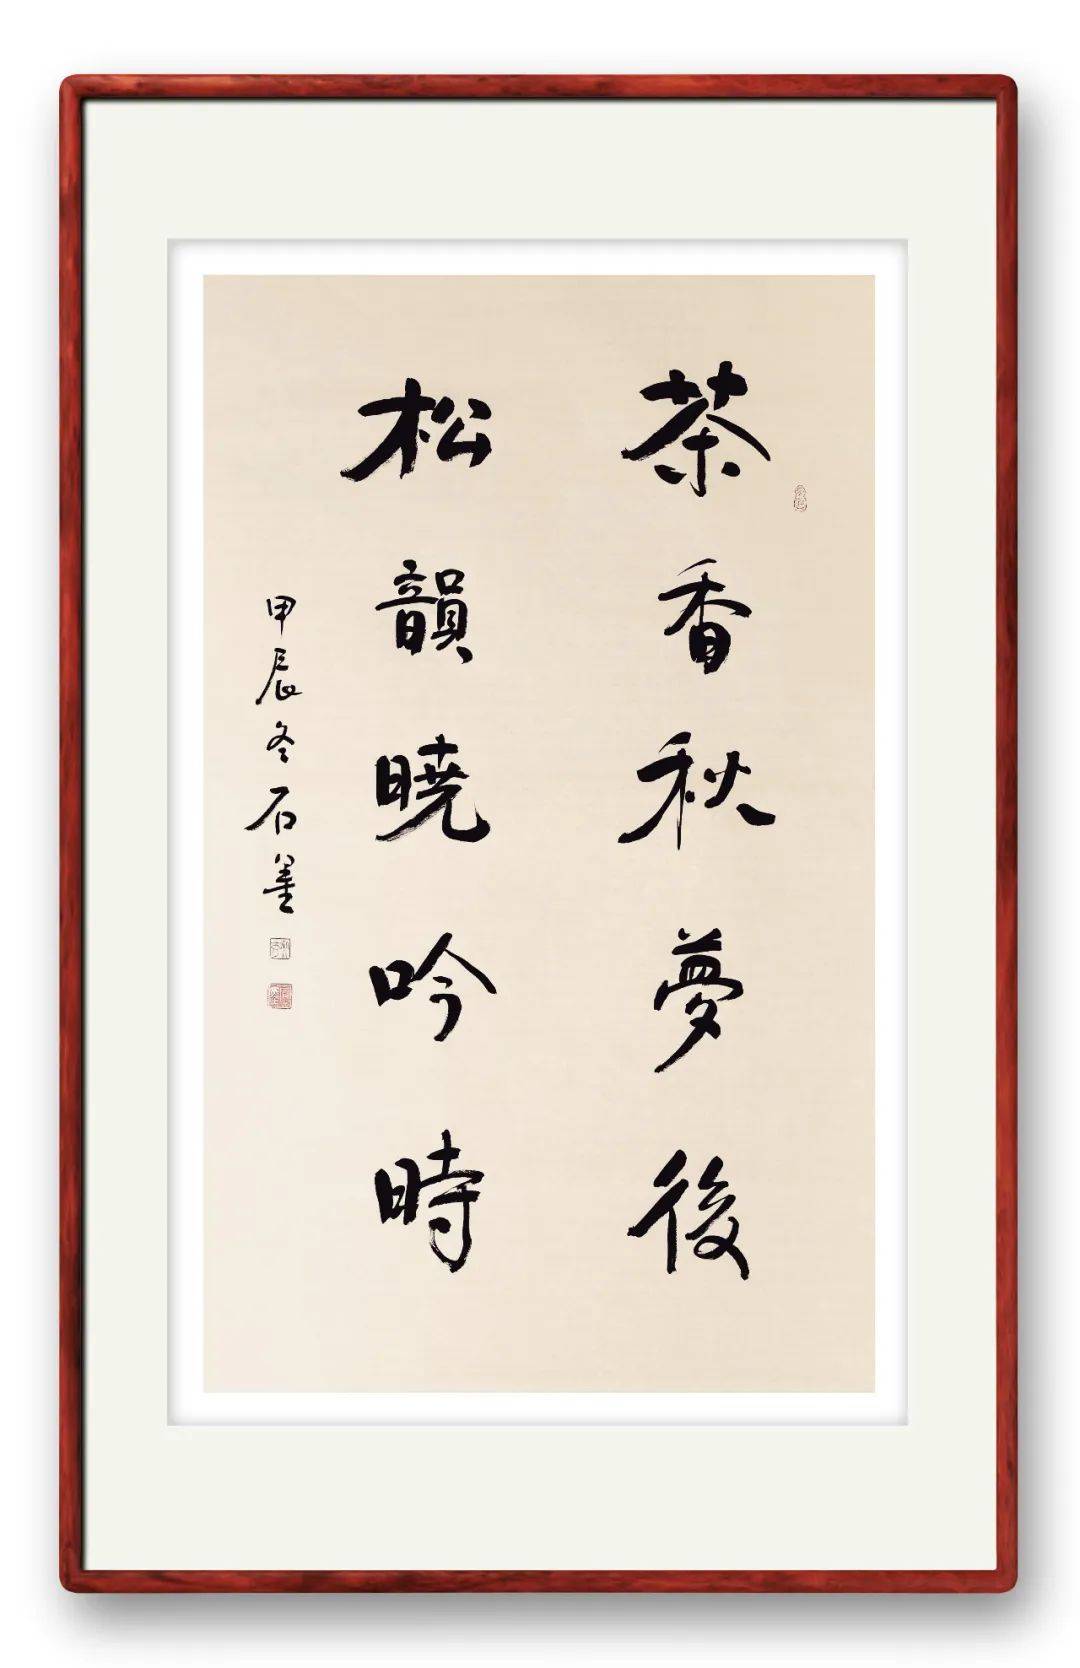 茶香秋夢後
松韻曉吟時
甲辰冬石墨